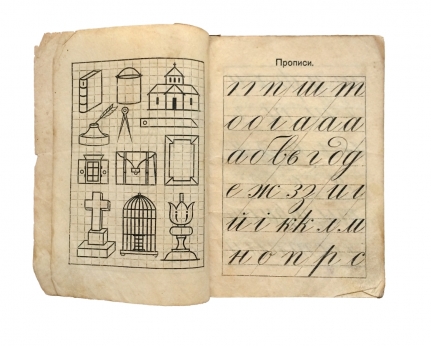 Прописи.
ı г п ш т
о о ı а а а
а б в ъ г д
е ж з и і
й і к к л м
н о п р с